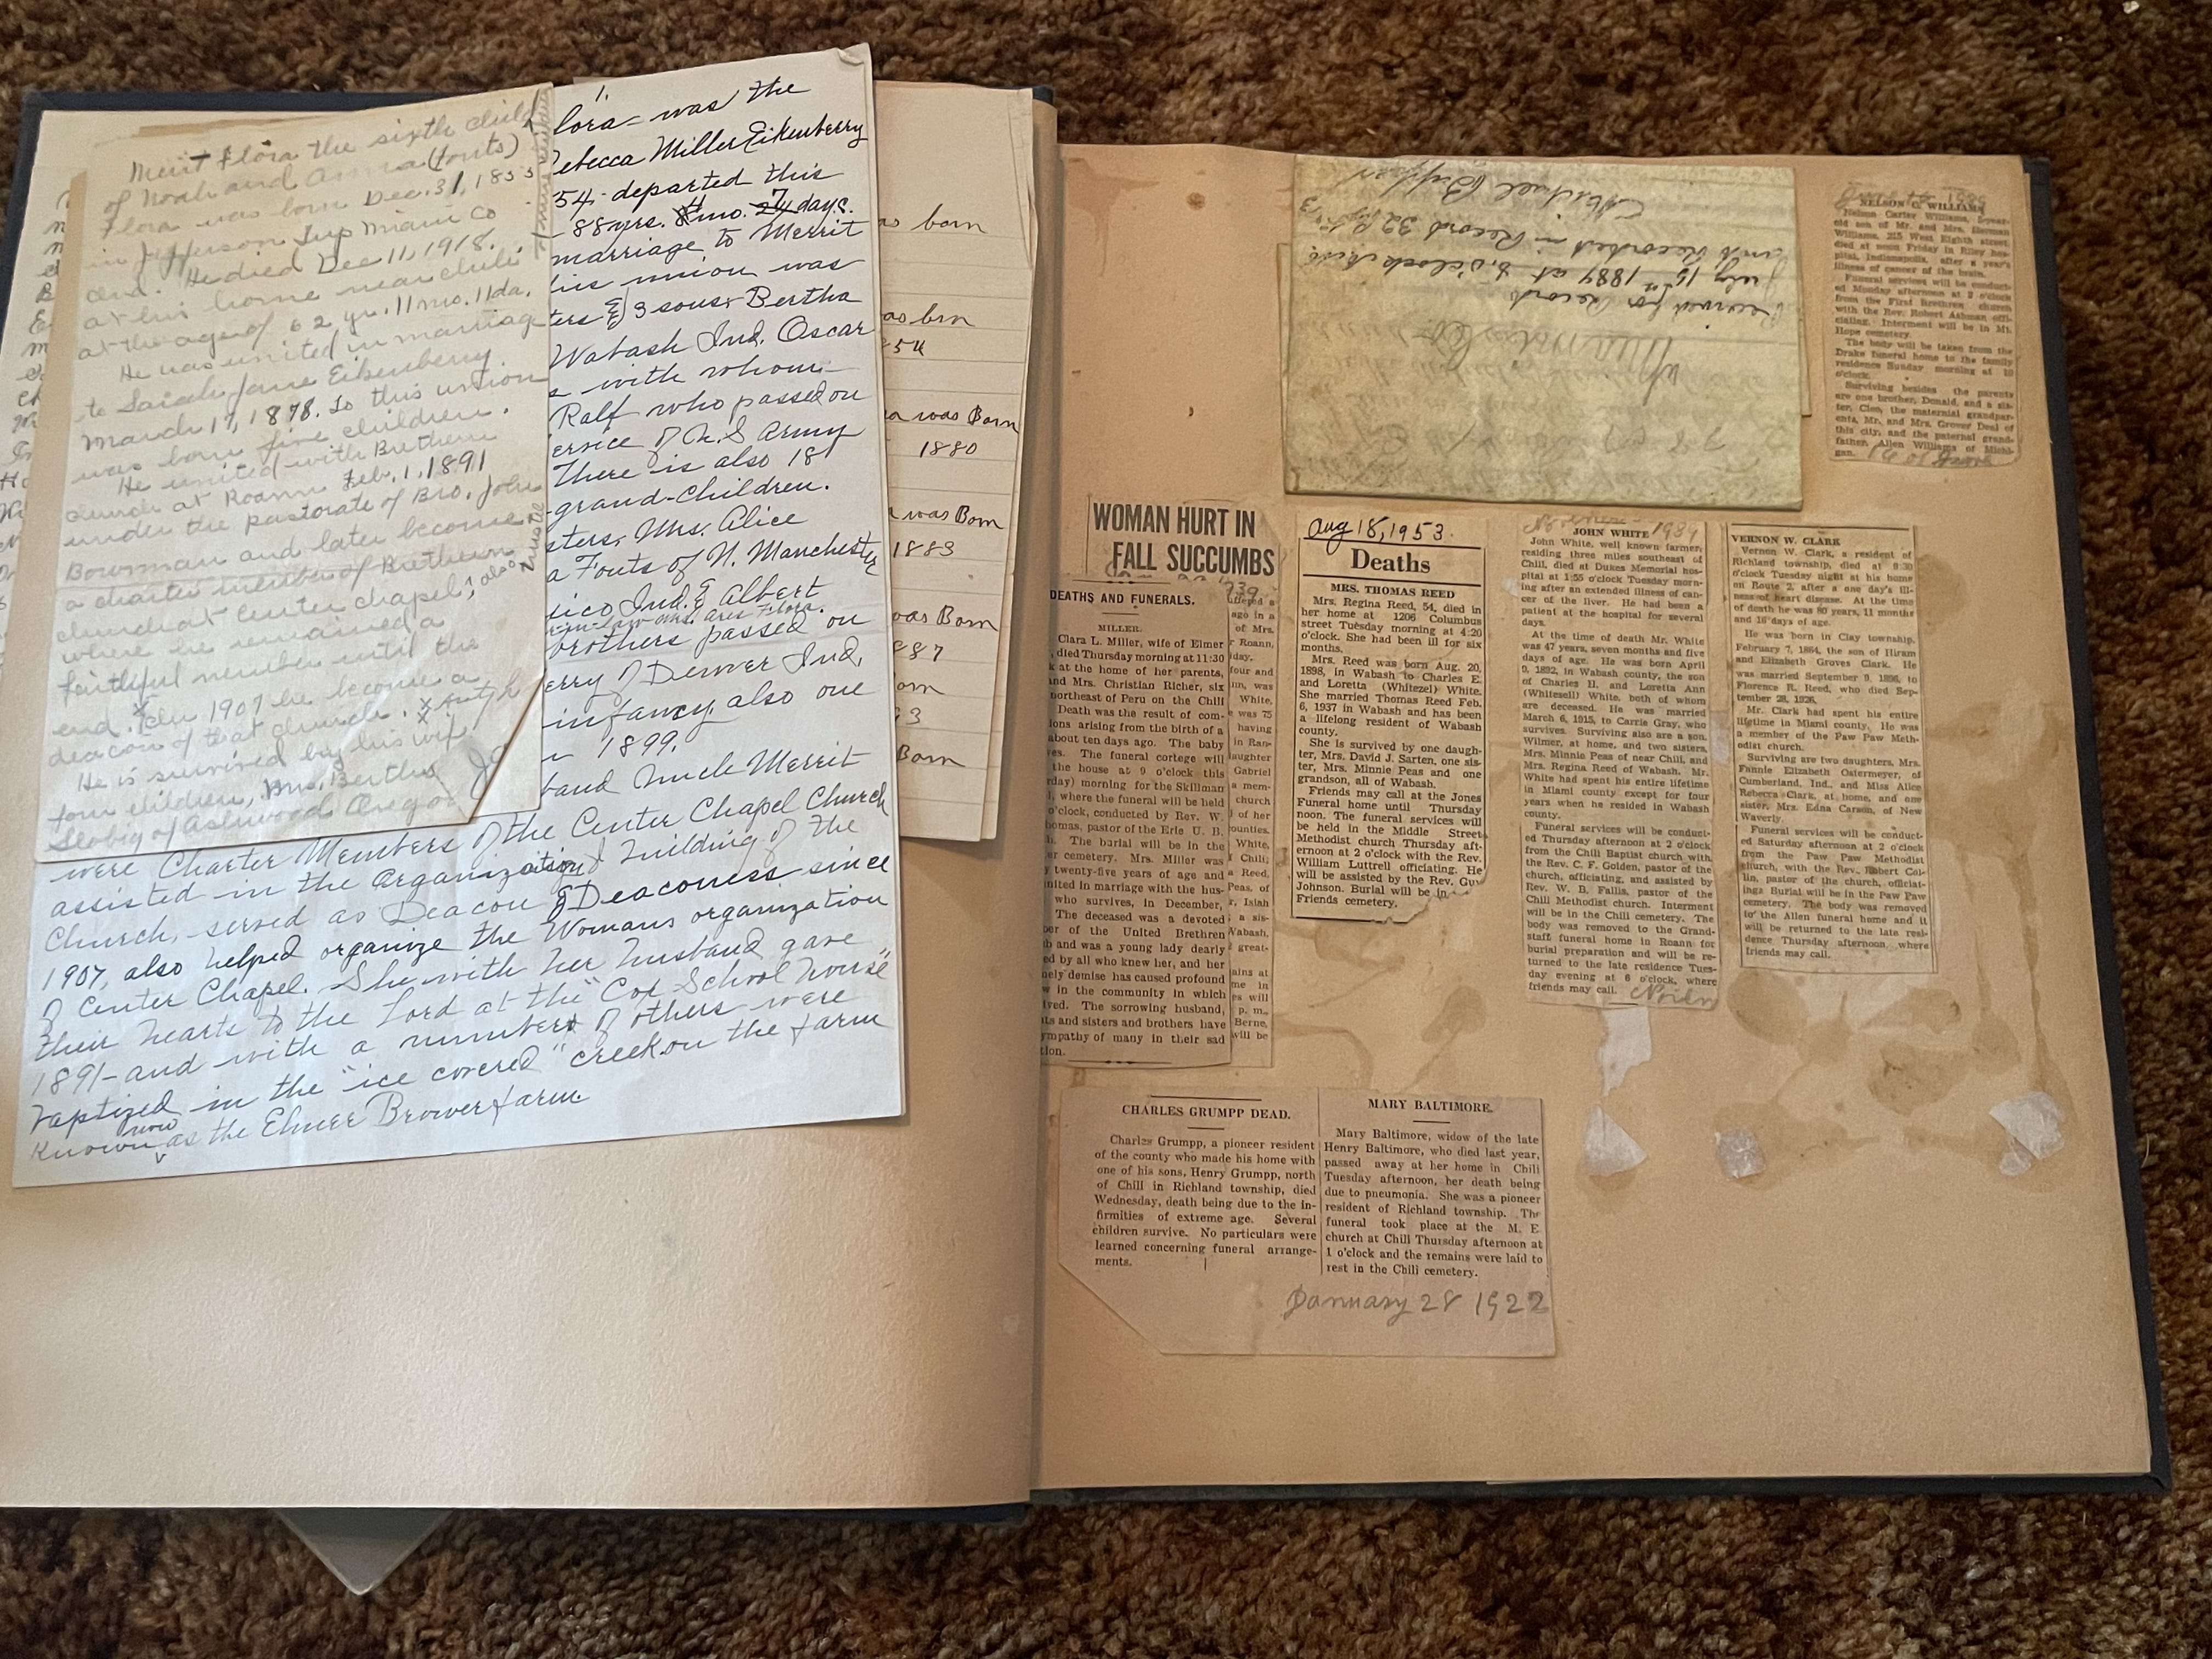 Merit Flora the sixth child
of Noah and Anna (Fouts)
Flora was born Dec. 31, 1855
in Jefferson Twp Miami Co
Ind. He died Dec 11, 1918.
at his home near Chili
at the age of 62 yr. 11 mo. 11 da.
He was united in marriage
to Sarah Jane Eikenberry
March 17, 1878. To this union
was born five children.
He united with Brethern
church at Roann Feb. 1, 1891
under the pastorate of Bro. John
Bowman and later become
a charter member of Brethern
church at Center chapel; also
where he remained a
faithful member until the
end. In 1907 he become a
deacon of that church.
He is survived by his wife
four children, Mrs. Bertha
Slobig of Ashwood Oregon
1.
lora - was the
ebecca Miller Eikenberry
54 - departed this
88 yrs. mo. days.
marriage to Merrit
his union was
ters & 3 sons, Bertha
Wabash Ind. Oscar
s with whom
Ralf who passed on
ervice of U.S Army
There is also 18
grand-children.
sters, Mrs. Alice
a Fouts of N. Manchester
xico Ind. & Albert
in-law Mrs. Ares Flora.
brothers passed on
erry of Denver Ind,
infancy also one
1899.
band Uncle Merrit
were Charter Members of the Center Chapel Church
assisted in the organization & building of the
Church, served as Deacon & Deaconess since
1907, also helped organize the Womans organization
of Center Chapel. She with her husband gave
their hearts to the Lord at the "Cox School House"
1891 - and with a number of others were
baptized in the "ice covered" creek on the farm
known now as the Elmer Brower farm.
as born
as brn
54
a was Born
1880
was Born
1883
was Born
887
orn
93
Born
Received for Record
July 15th 1884 at 8, o'clock
and Recorded in Record 32
Michael
NELSON C. WILLIAMS
Nelson Carter Williams, 5-year-
old son of Mr. and Mrs. Herman
Williams, 215 West Eighth street,
died at noon Friday in Riley hos-
pital, Indianapolis, after a year's
illness of cancer of the brain.
Funeral services will be conduct-
ed Monday afternoon at 2 o'clock
from the First Brethren church
with the Rev. Robert Ashman offi-
ciating. Interment will be in Mt.
Hope cemetery.
The body will be taken from the
Drake funeral home to the family
residence Sunday morning at 10
o'clock.
Surviving besides the parents
are one brother, Donald, and a sis-
ter, Cleo, the maternal grandpar-
ents, Mr. and Mrs. Grover Deal of
this city, and the paternal grand-
father, Allen Williams of Michi-
gan.
WOMAN HURT IN
FALL SUCCUMBS
DEATHS AND FUNERALS.
MILLER.
Clara L. Miller, wife of Elmer
died Thursday morning at 11:30
k at the home of her parents,
and Mrs. Christian Richer, six
northeast of Peru on the Chili
Death was the result of com-
ions arising from the birth of a
about ten days ago. The baby
ves. The funeral cortege will
the house at 9 o'clock this
day) morning for the Skillman
, where the funeral will be held
o'clock, conducted by Rev. W.
homas, pastor of the Erie U. B.
h. The burial will be in the
er cemetery. Mrs. Miller was
y twenty-five years of age and
nited in marriage with the hus-
who survives, in December,
The deceased was a devoted
ber of the United Brethren
h and was a young lady dearly
ed by all who knew her, and her
ely demise has caused profound
w in the community in which
ived. The sorrowing husband,
ts and sisters and brothers have
ympathy of many in their sad
tion.
ago in a
of Mrs.
r Roann,
day.
four and
White,
e was 75
having
in Ran-
aughter
Gabriel
a mem-
church
of her
ounties.
White,
Chili;
a Reed,
Peas, of
r, Isiah
a sis-
Wabash,
great-
ains at
me in
es will
p. m.,
Berne,
will be
Aug 18, 1953.
Deaths
MRS. THOMAS REED
Mrs. Regina Reed, 54, died in
her home at 1206 Columbus
street Tuesday morning at 4:20
o'clock. She had been ill for six
months.
Mrs. Reed was born Aug. 20,
1898, in Wabash to Charles E.
and Loretta (Whitezel) White.
She married Thomas Reed Feb.
6, 1937 in Wabash and has been
a lifelong resident of Wabash
county.
She is survived by one daugh-
ter, Mrs. David J. Sarten, one sis-
ter, Mrs. Minnie Peas and one
grandson, all of Wabash.
Friends may call at the Jones
Funeral home until Thursday
noon. The funeral services will
be held in the Middle Street
Methodist church Thursday aft-
ernoon at 2 o'clock with the Rev.
William Luttrell officiating. He
will be assisted by the Rev. Guy
Johnson. Burial will be in
Friends cemetery.
1939
JOHN WHITE
John White, well known farmer,
residing three miles southeast of
Chili, died at Dukes Memorial hos-
pital at 1:55 o'clock Tuesday morn-
ing after an extended illness of can-
cer of the liver. He had been a
patient at the hospital for several
days.
At the time of death Mr. White
was 47 years, seven months and five
days of age. He was born April
9, 1892, in Wabash county, the son
of Charles H. and Loretta Ann
(Whitesell) White, both of whom
are deceased. He was married
March 6, 1915, to Carrie Gray, who
survives. Surviving also are a son,
Wilmer, at home, and two sisters,
Mrs. Minnie Peas of near Chili, and
Mrs. Regina Reed of Wabash. Mr.
White had spent his entire lifetime
in Miami county except for four
years when he resided in Wabash
county.
Funeral services will be conduct-
ed Thursday afternoon at 2 o'clock
from the Chili Baptist church with
the Rev. C. F. Golden, pastor of the
church, officiating, and assisted by
Rev. W. B. Fallis, pastor of the
Chili Methodist church. Interment
will be in the Chili cemetery. The
body was removed to the Grand-
staff funeral home in Roann for
burial preparation and will be re-
turned to the late residence Tues-
day evening at 6 o'clock, where
friends may call.
VERNON W. CLARK
Vernon W. Clark, a resident of
Richland township, died at 9:30
o'clock Tuesday night at his home
on Route 2, after a one day's ill-
ness of heart disease. At the time
of death he was 80 years, 11 months
and 16 days of age.
He was born in Clay township,
February 7, 1864, the son of Hiram
and Elizabeth Groves Clark. He
was married September 9, 1886, to
Florence R. Reed, who died Sep-
tember 28, 1926.
Mr. Clark had spent his entire
lifetime in Miami county. He was
a member of the Paw Paw Meth-
odist church.
Surviving are two daughters, Mrs.
Fannie Elizabeth Ostermeyer, of
Cumberland, Ind., and Miss Alice
Rebecca Clark, at home, and one
sister, Mrs. Edna Carson, of New
Waverly.
Funeral services will be conduct-
ed Saturday afternoon at 2 o'clock
from the Paw Paw Methodist
church, with the Rev. Robert Col-
lin, pastor of the church, officiat-
ing. Burial will be in the Paw Paw
cemetery. The body was removed
to the Allen funeral home and it
will be returned to the late resi-
dence Thursday afternoon, where
friends may call.
CHARLES GRUMPP DEAD.
Charles Grumpp, a pioneer resident
of the county who made his home with
one of his sons, Henry Grumpp, north
of Chili in Richland township, died
Wednesday, death being due to the in-
firmities of extreme age. Several
children survive. No particulars were
learned concerning funeral arrange-
ments.
MARY BALTIMORE.
Mary Baltimore, widow of the late
Henry Baltimore, who died last year,
passed away at her home in Chili
Tuesday afternoon, her death being
due to pneumonia. She was a pioneer
resident of Richland township. The
funeral took place at the M. E.
church at Chili Thursday afternoon at
1 o'clock and the remains were laid to
rest in the Chili cemetery.
January 28 1922